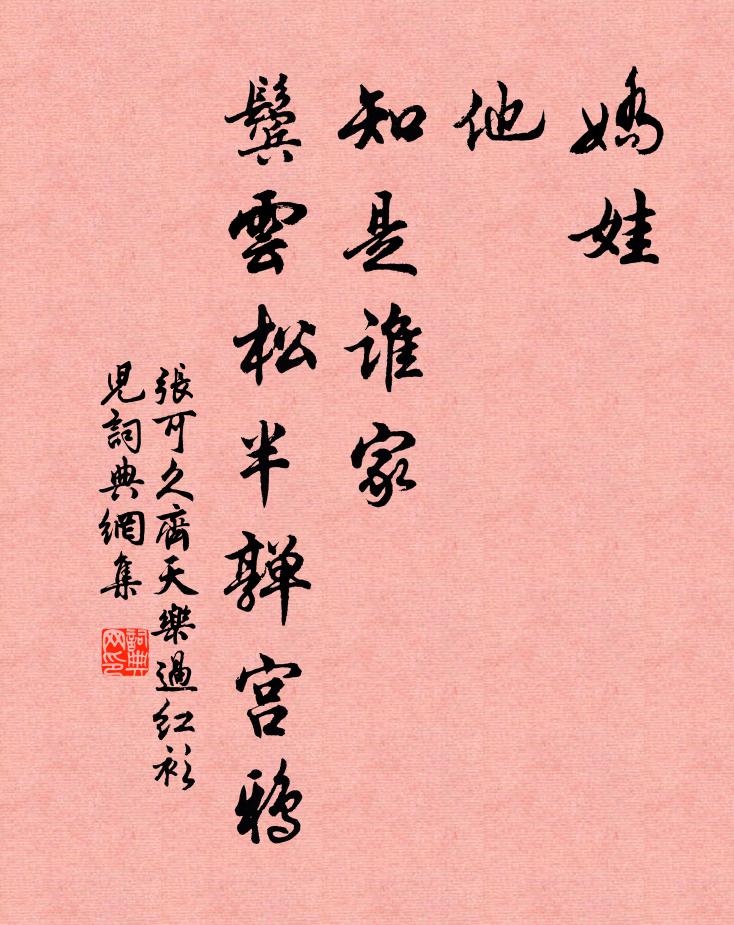 嬌娃
他
知是誰家
鬢雲松半亸宮鴉
張可久齊天樂過红衫
児詞典網集
詞典
网印